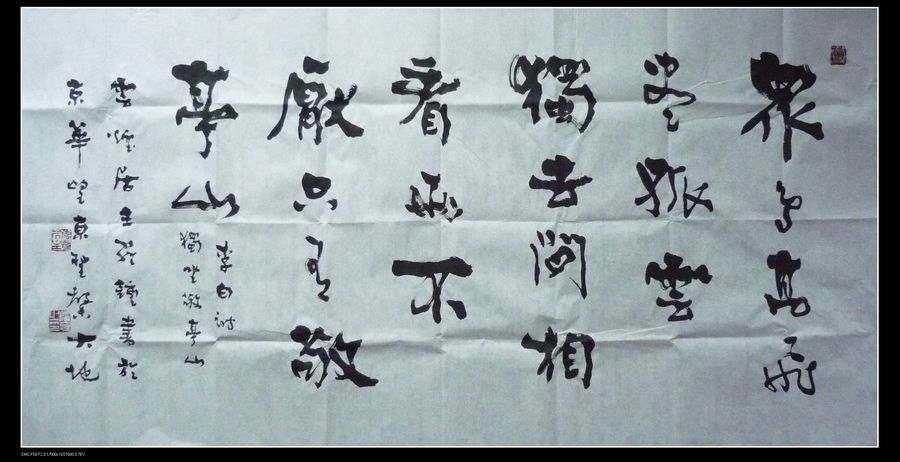 眾鳥高飛
盡孤雲
獨去閒相
看兩不
厭只有敬
亭山
李白詩
獨坐敬亭山
雲煙居主鐘書於
京華望京聖馨大地